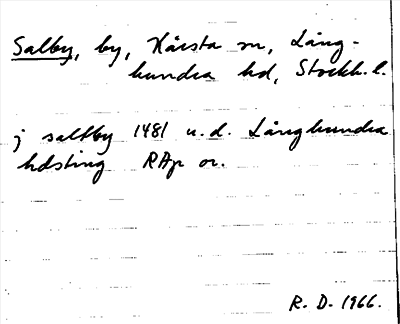 Salby, by, Kårsta sn, Lång-
hundra hd, Stockh. l.
j saltby 1481 u. d. Långhundra
hdsting RAp or.
R. D. 1966.